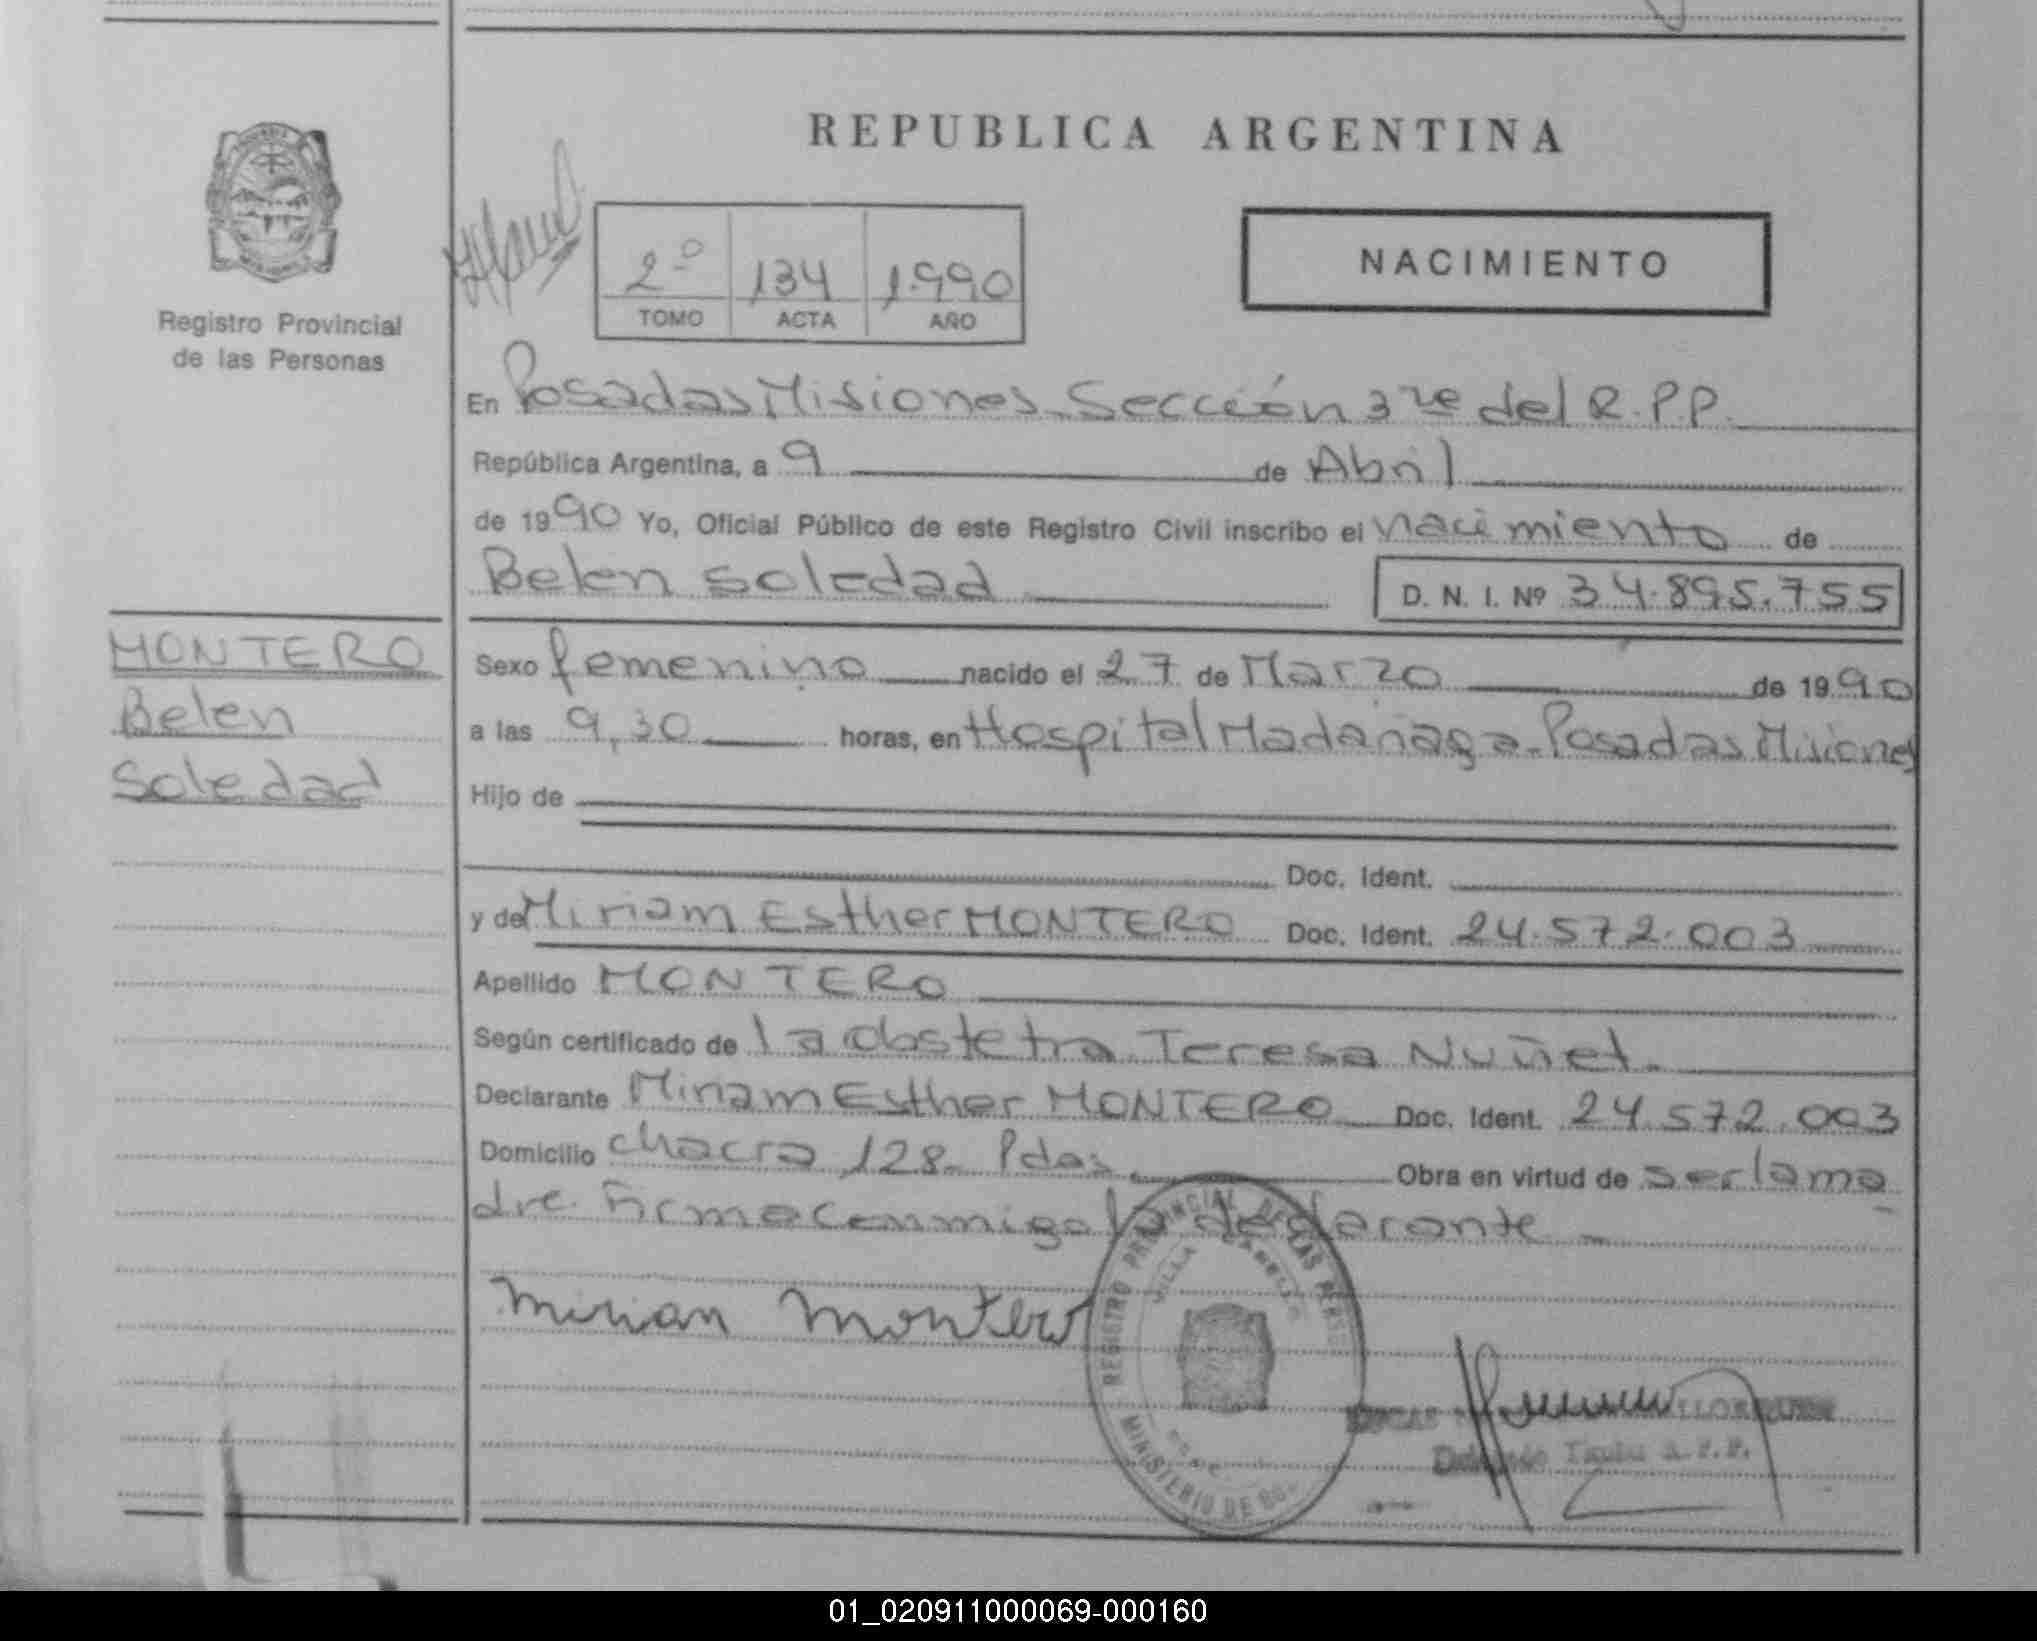 REPUBLICA ARGENTINA
2º 134 1.990
TOMO ACTA AÑO
NACIMIENTO
Registro Provincial
de las Personas
En Posadas Misiones Sección 3ra del R.P.P.
República Argentina, a 9 de Abril
de 1990 Yo, Oficial Público de este Registro Civil inscribo el nacimiento de
Belen Soledad D. N. I. Nº 34.895.755
MONTERO
Belen
Soledad
Sexo femenino nacido el 27 de Marzo de 1990
a las 9,30 horas, en Hospital Madariaga-Posadas Misiones
Hijo de
Doc. Ident.
y de Miriam Esther MONTERO Doc. Ident. 24.572.003
Apellido MONTERO
Según certificado de la obstetra Teresa Nuñez.
Declarante Miriam Esther MONTERO Doc. Ident. 24.572.003
Domicilio chacra 128- Pdas. Obra en virtud de ser la ma
dre. Firma conmigo la declarante -
Mirian Montero
REGISTRO PROVINCIAL DE LAS PERS
VILLA CABELLO
MINISTERIO DE GO
R.P.P.
01_020911000069-000160